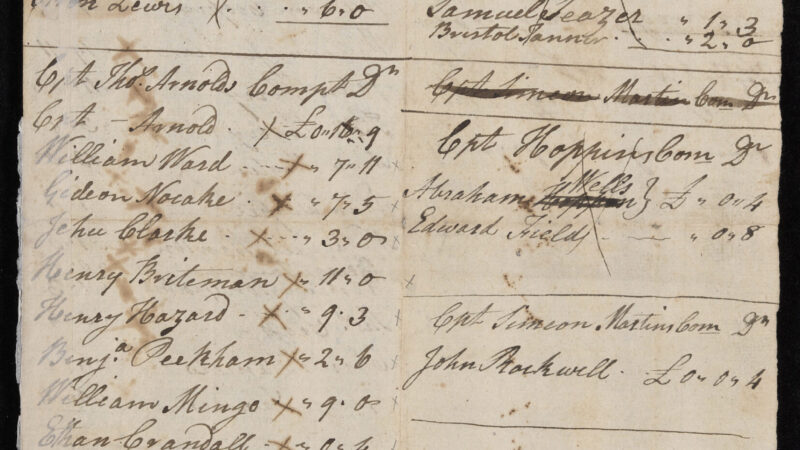 Lewis × " 6 " 0
Cpt Thos. Arnolds Compt Dr
Cpt - Arnold. × £0 " 16 " 9
William Ward × " 7 " 11
Gideon Nocake × " 7 " 5
John Clarke × " 3 " 0
Henry Briteman × " 11 " 0
Henry Hazard - × " 9 . 3
Benja. Peckham × " 2 " 6
William Mingo × " 9 . 0
Ethan Crandall × " 0 " 4
Samuel " 1 " 3
Bristol Tanner " 2 " 0
Cpt Simeon Martin Com Dr
Cpt Hoppins Com Dr
Wells
Abraham } £ " 0 " 4
Edward Field " 0 " 8
Cpt Simeon Martins Com Dr
John Rockwell - £0 " 0 " 4